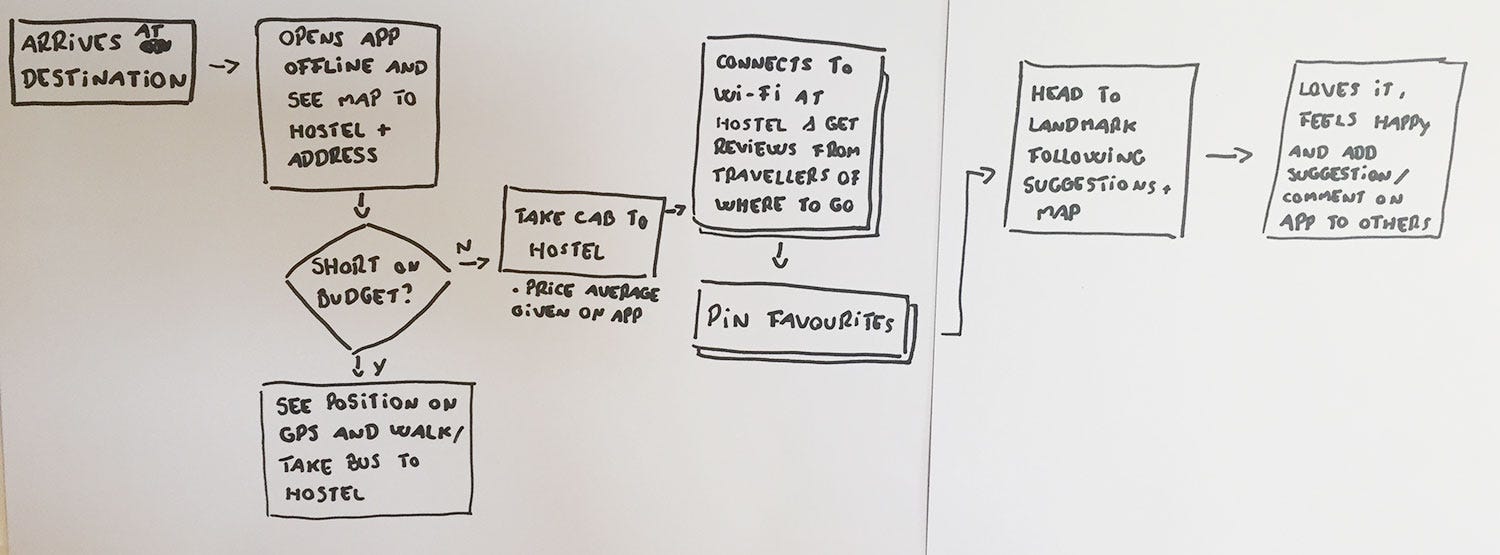 ARRIVES AT
DESTINATION
OPENS APP
OFFLINE AND
SEE MAP TO
HOSTEL +
ADDRESS
SHORT ON
BUDGET?
N
Y
SEE POSITION ON
GPS AND WALK/
TAKE BUS TO
HOSTEL
TAKE CAB TO
HOSTEL
. PRICE AVERAGE
GIVEN ON APP
CONNECTS TO
Wi-Fi AT
HOSTEL & GET
REVIEWS FROM
TRAVELLERS OF
WHERE TO GO
PIN FAVOURITES
HEAD TO
LANDMARK
FOLLOWING
SUGGESTIONS +
MAP
LOVES IT,
FEELS HAPPY
AND ADD
SUGGESTION/
COMMENT ON
APP TO OTHERS